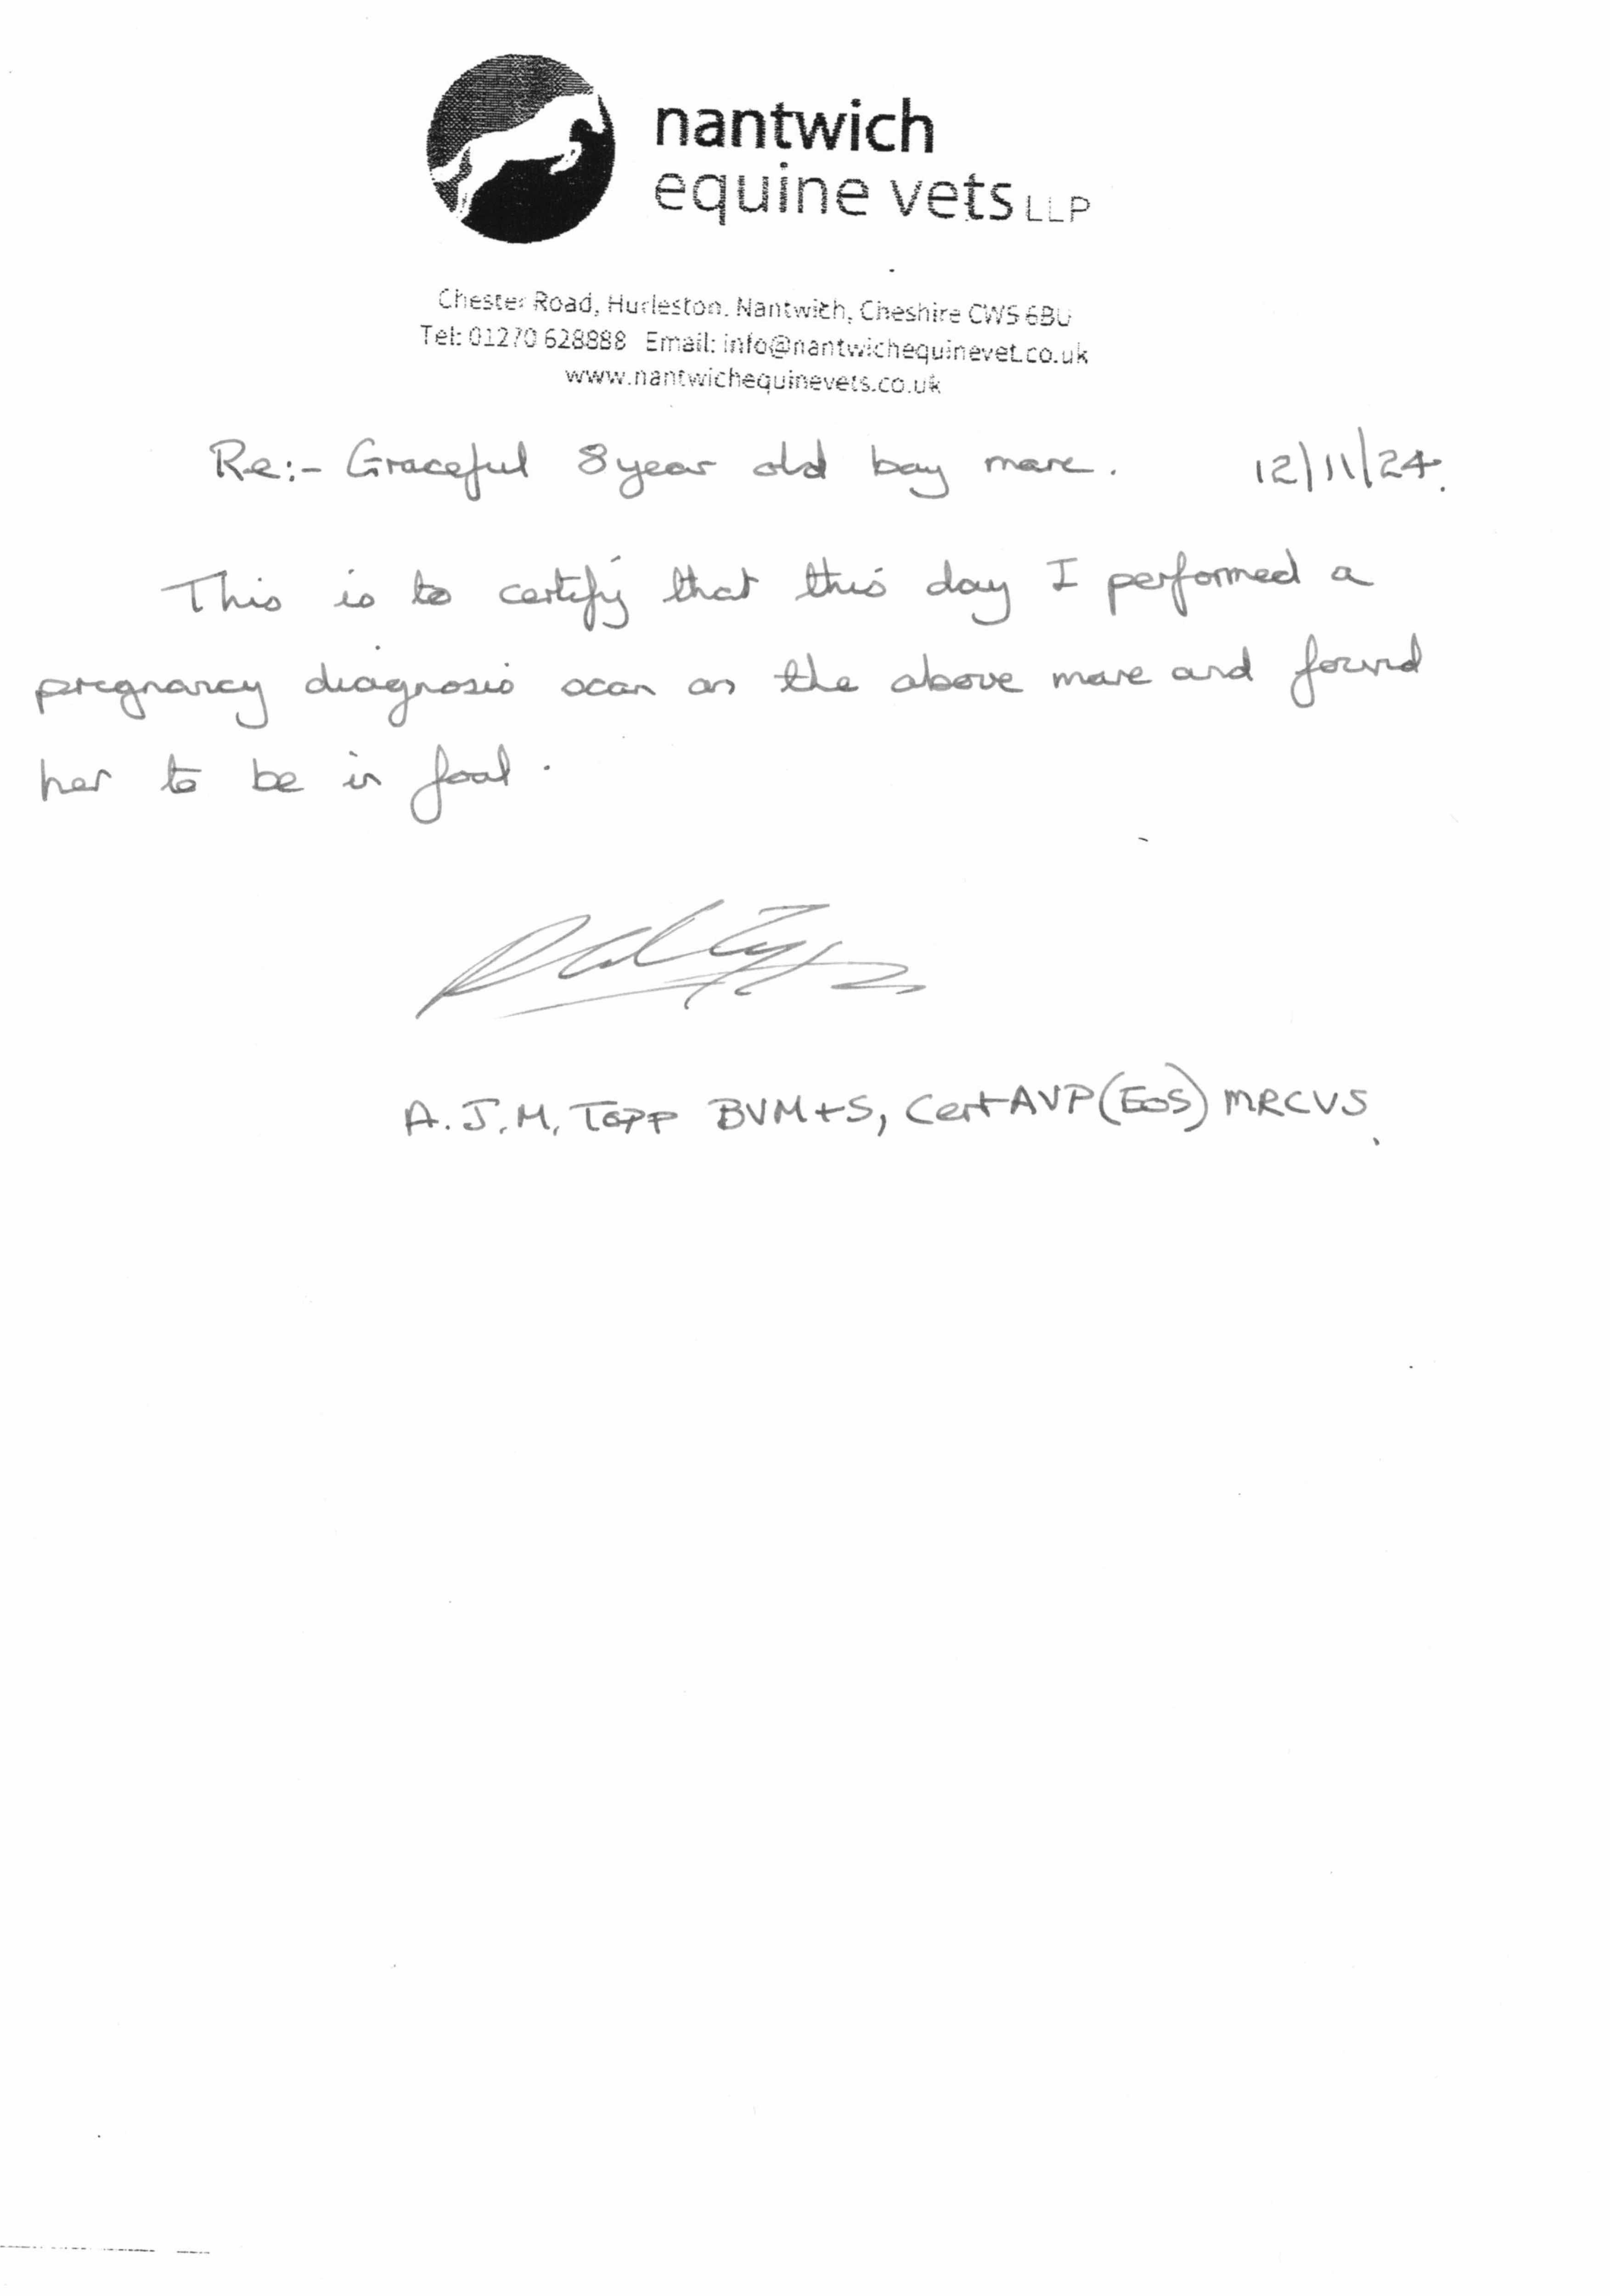 nantwich
equine vets LLP
Chester Road, Hurleston, Nantwich, Cheshire CW5 6BU
Tel: 01270 628888 Email: info@nantwichequinevet.co.uk
www.nantwichequinevets.co.uk
Re:- Graceful 8 year old bay mare. 12/11/24.
This is to certify that this day I performed a
pregnancy diagnosis scan on the above mare and found
her to be in foal.
A.J.M. Topp BVM+S, CertAVP(EOS) MRCVS.